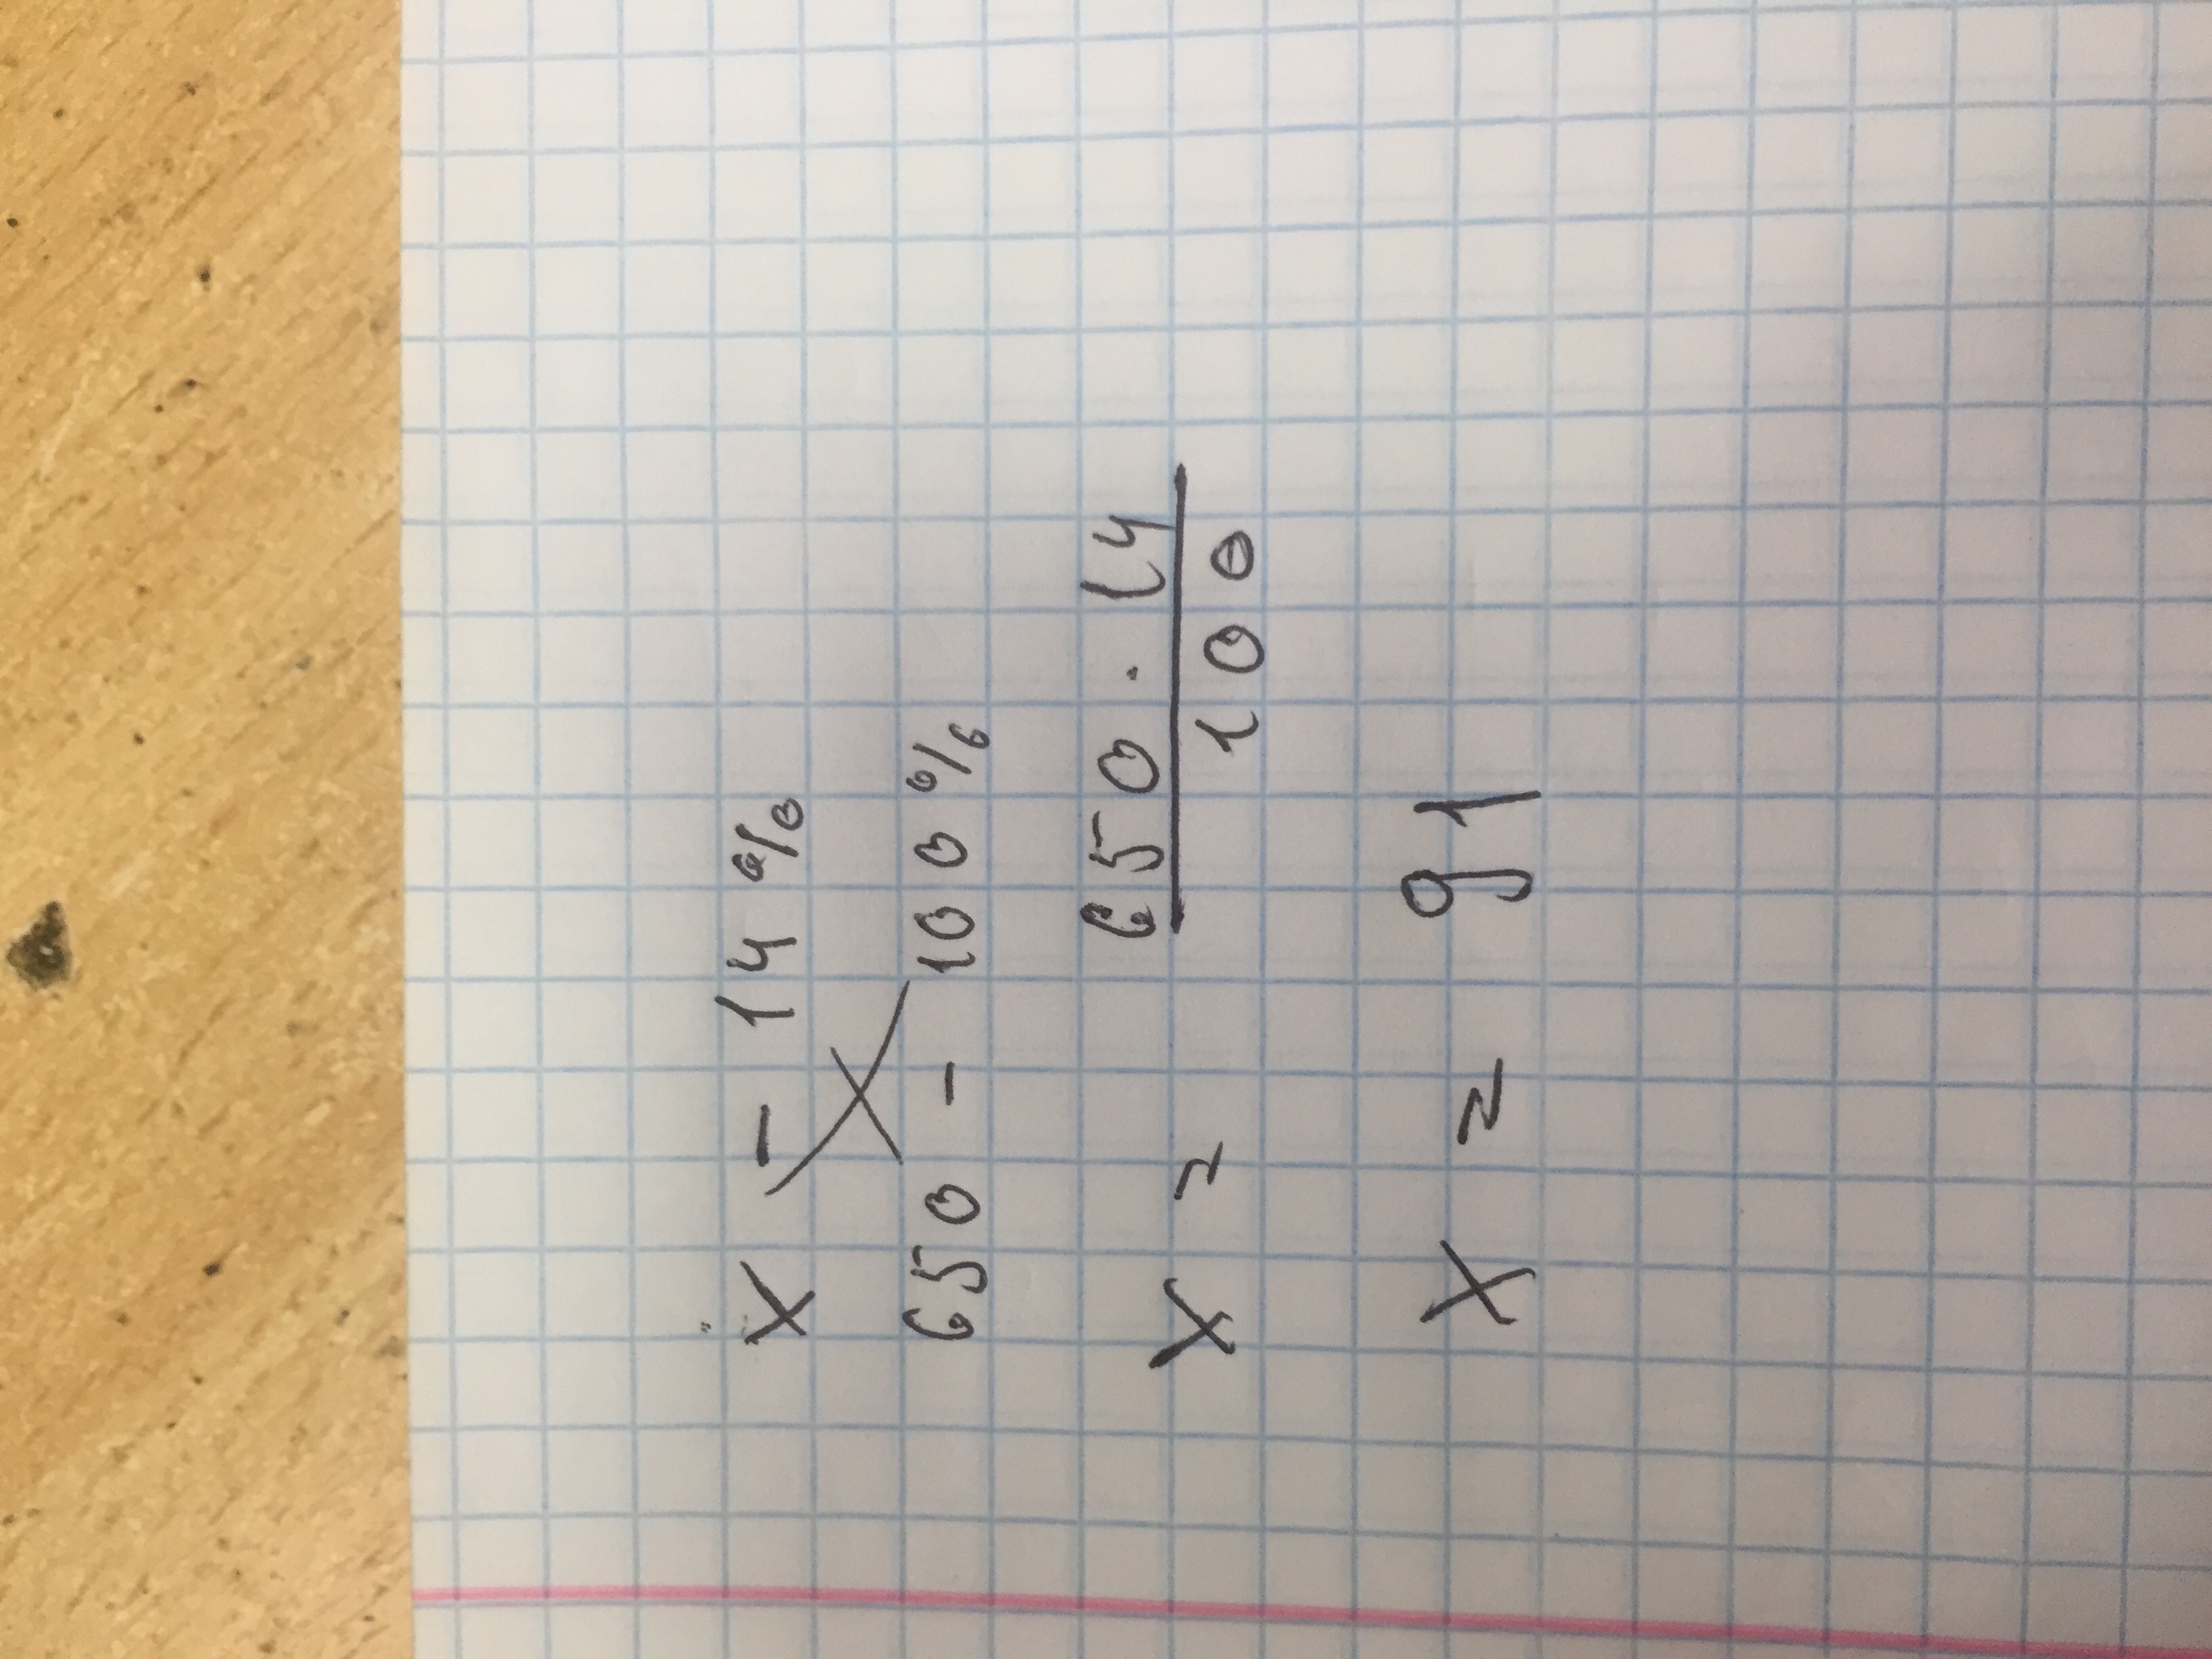 x - 14%
650 - 100%
x = 650 · 14
100
x = 91